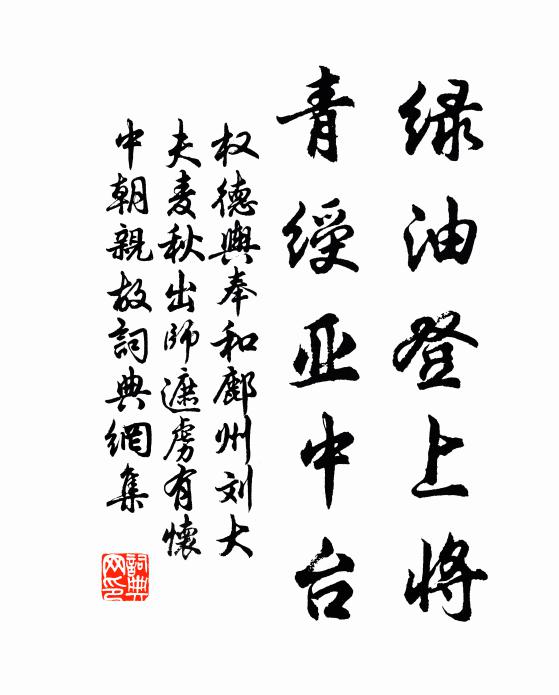 绿油登上将
青绶亚中台
权德舆奉和鄜州刘大
夫麦秋出师遮虏有怀
中朝親故詞典網集
詞典网印